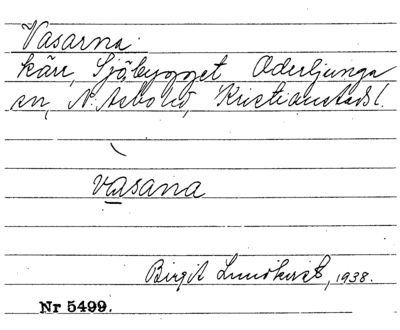 Vasarna
kärr, Sjöbygget Oderljunga
sn, N. Åsbohd, Kristianstads l.
vasana
Birgit Lundkvist, 1938.
Nr 5499.